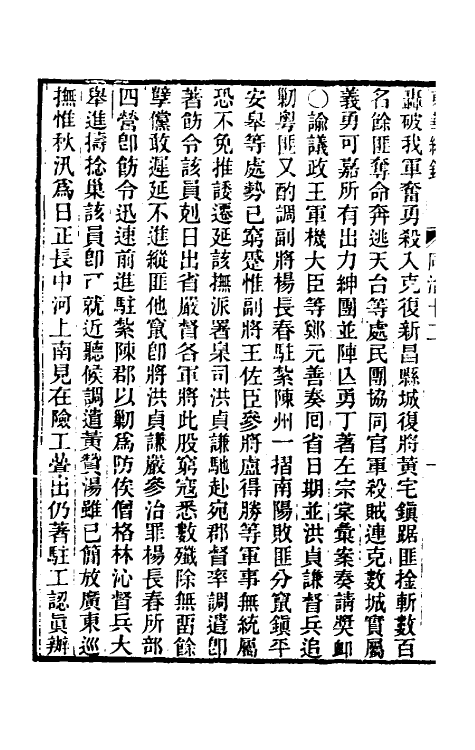 轟破我軍奮勇殺入克復新昌縣城復將黃宅鎮踞匪搶斬數百
名餘匪奪命奔逃天台等處民團協同官軍殺賊連克數城實屬
義勇可嘉所有出力紳團並陣亾勇丁著左宗棠彙案奏請獎卹
〇諭議政王軍機大臣等鄭元善奏囘省日期並洪貞謙督兵追
勦粵匪又酌調副將楊長春駐紮陳州一摺南陽敗匪分竄鎮平
安皋等處勢已窮蹙惟副將王佐臣參將盧得勝等軍事無統屬
恐不免推諉遷延該撫派署臬司洪貞謙馳赴宛郡督率調遣卽
著飭令該員剋日出省嚴督各軍將此股窮寇悉數殲除無畱餘
孽儻敢遲延不進縱匪他竄卽將洪貞謙嚴參治罪楊長春所部
四營卽飭令迅速前進駐紮陳郡以勦爲防俟僧格林沁督兵大
舉進擣捻巢該員卽可就近聽候調遣黃贊湯雖已簡放廣東巡
撫惟秋汛爲日正長中河上南見在險工疊出仍著駐工認眞辦